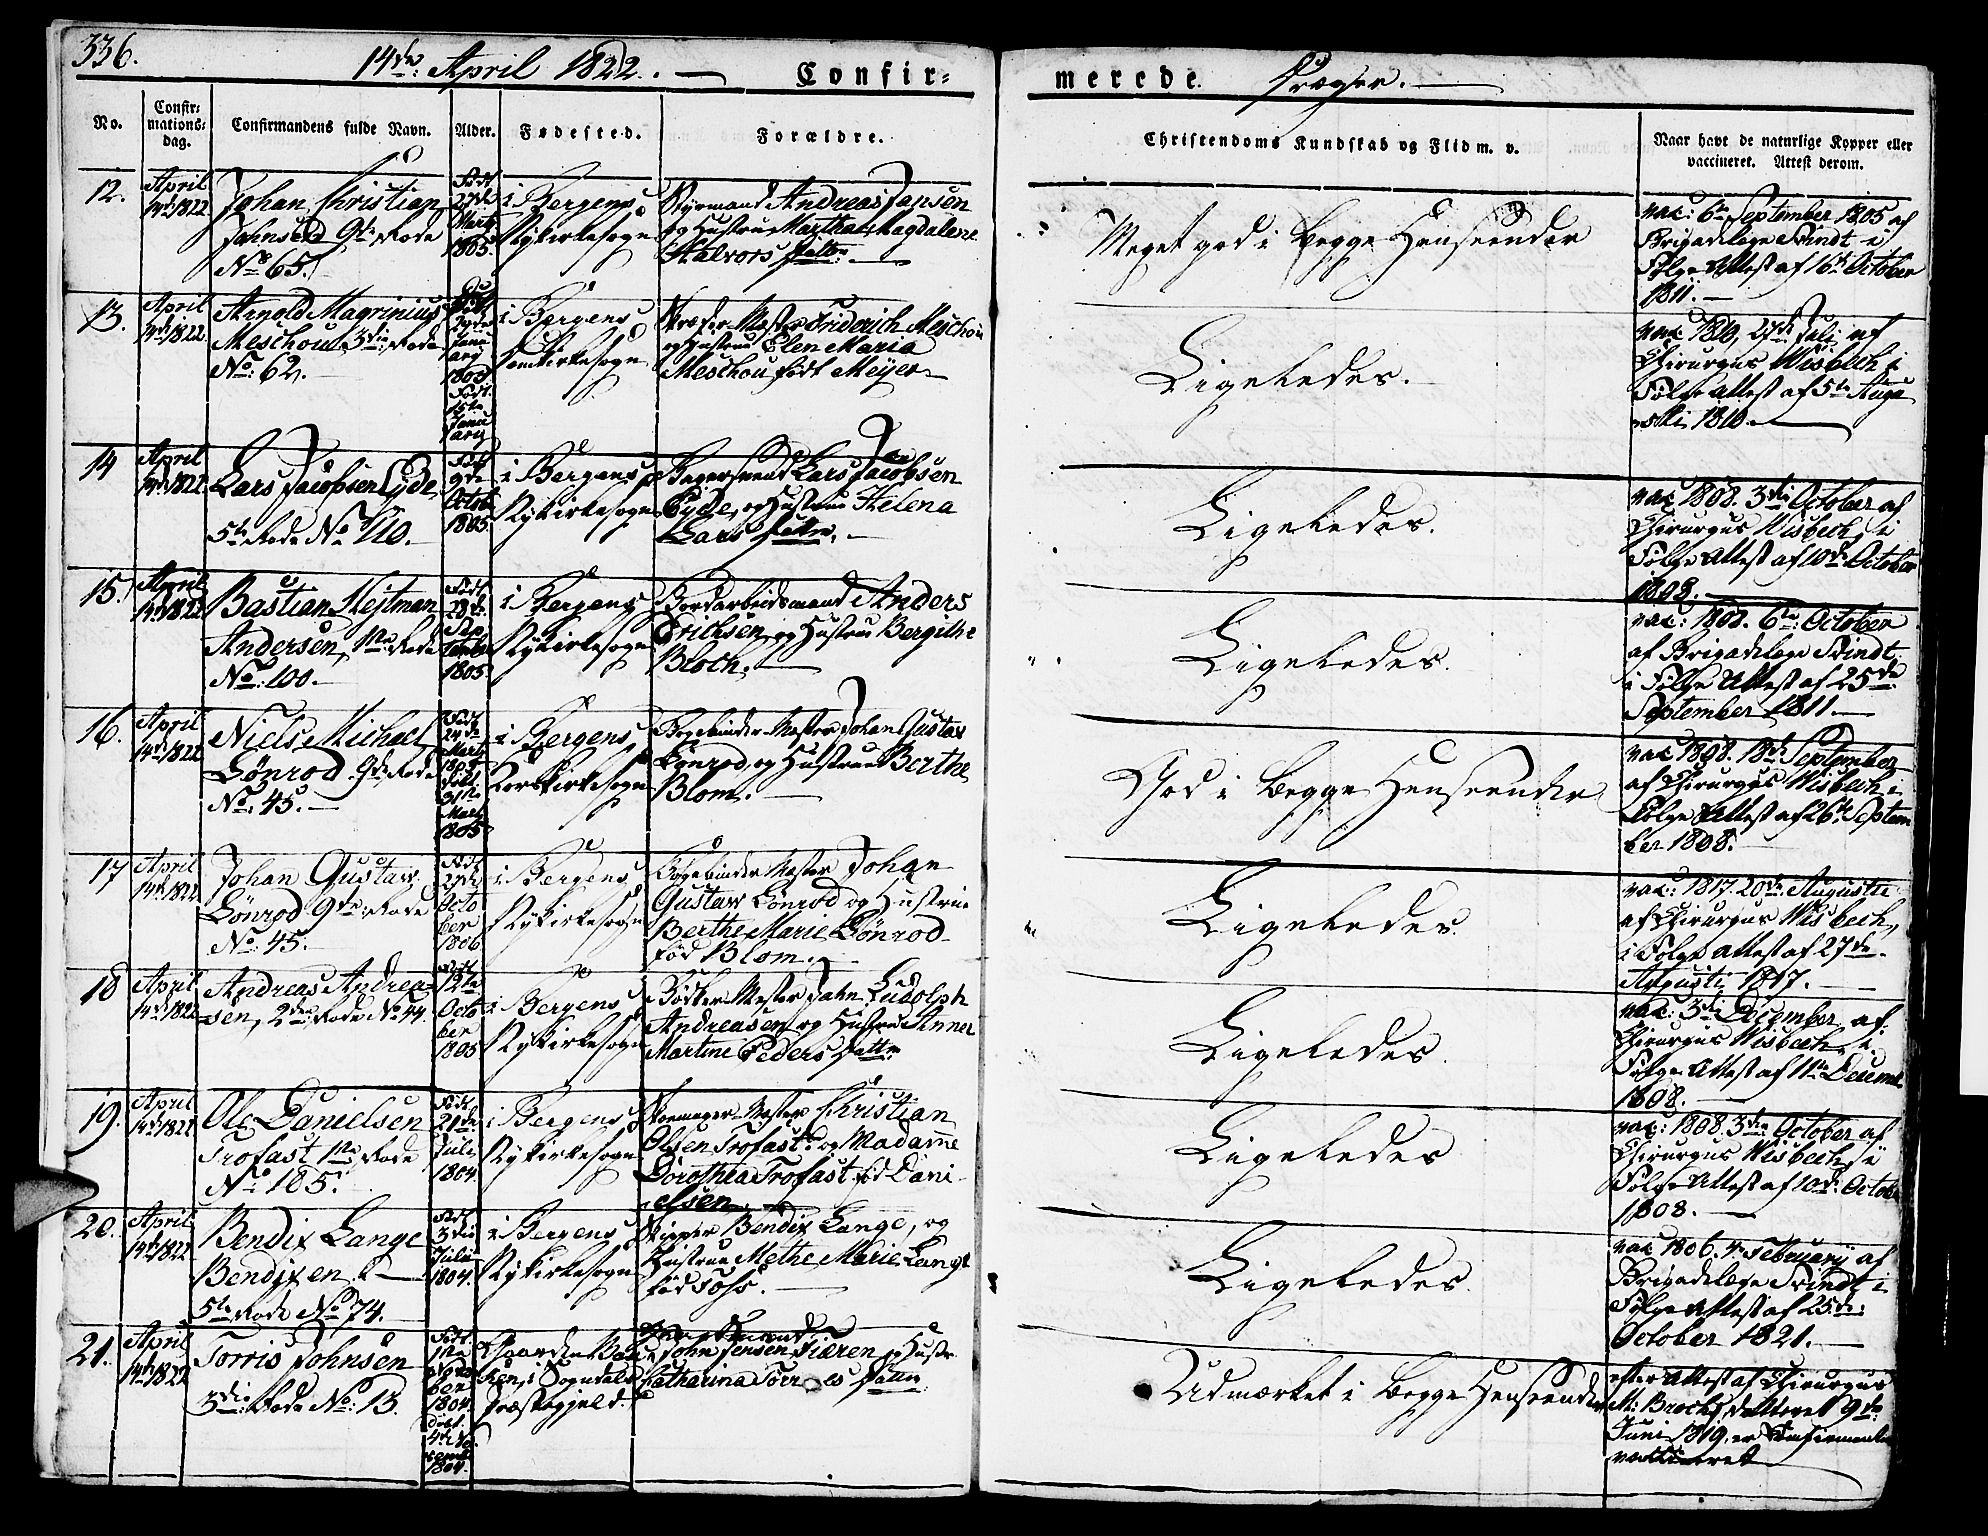 336.
14de April 1822.
Confir-
merede.
No.
Confir-
mations-
dag.
Confirmandens fulde Navn.
Alder.
Fødested.
Forældre.
Christendoms Kundskab og Flid m. v.
Naar havt de naturlige Kopper eller
vaccineret. Attest derom.
12.
April
14de 1822
Johan Christian
Jahnsen 9de Rode
No 65.
Født
27de
Marti
1805.
i Bergens
Nykirkesogn
Styrmand Andreas Jansen
og Hustrue Martha Magdalene
Halvorsdatter
Meget god i begge Henseender
vac: 6te September 1805 af
Brigadelæge Krindt i
Følge Attest af 16de October
1811.
13.
April
14de 1822
Arnold Magrinius
Meschou 3die Rode
No: 62.
Født
15de
Janu
arii
i Bergens
Domkirkesogn
Skræder Mester Friderich Meschou
og Hustrue Elen Maria
Meschou født Meyer
Ligeledes.
vac 1810, 27de Juli af
Chirurgus Wisbech i
Følge Attest af 5te Augu
sti 1810.
14
April
14de 1822
Lars Jacobsen Eyde
5te Rode No 110.
Født
9de
Octob
1805
i Bergens
Nykirkesogn
Bager svend Lars Jacobsen
Eyde, og Hustrue Helena
Lars datter.
Ligeledes.
vac 1808. 3die October af
Chirurgus Wisbech, i
Følge Attest af 10de October
1808.
15.
April
14de 1822
Bastian Hejtman
Andersen, 1ste Rode
No: 100.
Født
28de
Sep
tember
1805
i Bergens
Nykirkesogn
Bordarbeidsmand Anders
Erichsen, og Hustrue Bergithe
Bloch.
Ligeledes.
vac: 1808. 6te October
af Brigadelæge Krindt
i Følge Attest af 25de
September 1811.
16.
April
14de 1822
Niels Michael
Lönrod 9de Rode
No: 45.
Født
31te
Marti
1805
i Bergens
Korskirkesogn
Bogbinder Mester Johan Gustav
Lönrod, og Hustrue Berthe
Blom.
God i begge Henseender
vac 1808. 18de September
af Chirurgus Wisbech i
Følge Attest af 26de Septem
ber 1808.
17
April
14de 1822
Johan Gustav
Lönrod 9de Rode
No: 45.
Født
27de
Octo
ber
1806
i Bergens
Nykirkesogn
Bogbinder Mester Johan
Gustav Lönrod og Hustrue
Berthe Marie Lönrod
fød Blom.
Ligeledes
vac: 1817. 20de Augusti
af Chirurgus Wisbech,
i Følge Attest af 27de
Augusti 1817.
18
April
14de 1822
Andreas Andrea-
sen, 2den Rode No 44.
Født
12te
Octo
ber
1805
i Bergens
Nykirkesogn
Bødker Mester Jahn Ludolph
Andreasen og Hustrue Anne
Martine Peders datter
Ligeledes.
vac: 3die December af
Chirurgus Wisbech, i
Følge Attest af 11te Decemb
1808.
19.
April
14de 1822
Ole Danielsen
Trofast 1ste Rode
No: 185.
Født
21de
Juli
1804
i Bergens
Nykirkesogn
Skomager Mester Christian
Olsen Trofast, og Madame
Dorothea Trofast fød Dani-
elsen.
Ligeledes
vac: 1808. 3die October af
Chirurgus Wisbech, i
Følge Attest af 10de Octob
1808.
20.
April
14de 1822
Bendix Lange
Bendixen.
5te Rode No 74.
Født
3die
Julii
1804.
i Bergens
Nykirkesogn
Skipper Bendix Lange, og
Hustrue Methe Marie Lange
fød Foss.
Ligeledes.
vac 1806. 4. Februarij af
Brigadelæge Krindt i
Følge Attest af 25de
October 1821.
21.
April
14de 1822
Torris Johnsen
3die Rode No: 13.
Født
1ste
Novem
ber
1804.
Gaarden
i Sogndals
Præstegjeld.
John Jensen Fiæren og Hustr
Catharina datter
Udmærket i begge Henseender
efter Attest af Chirurgus
M: Broch, dateret 9de
Juni 1819, er Confirmanden
vaccineret